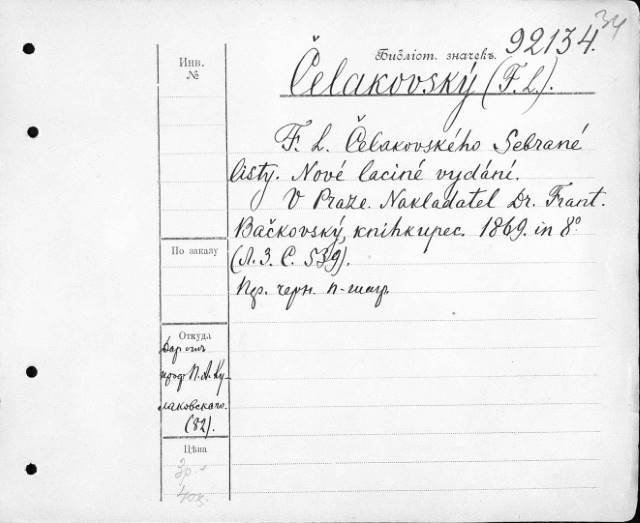 34
Библіот. значекъ. 92134.
Инв.
№
Čelakovský (F. L.).
F. L. Čelakovského Sebrané
listy. Nové laciné vydání.
V Praze. Nakladatel Dr. Frant.
Bačkovský, knihkupec. 1869. in 8º
(Л. З. С. 539).
По заказу
черн. п-шагр.
Откуда
Даръ отъ
проф. П. А. Ку-
лаковскаго.
(82).
Цѣна
3р.